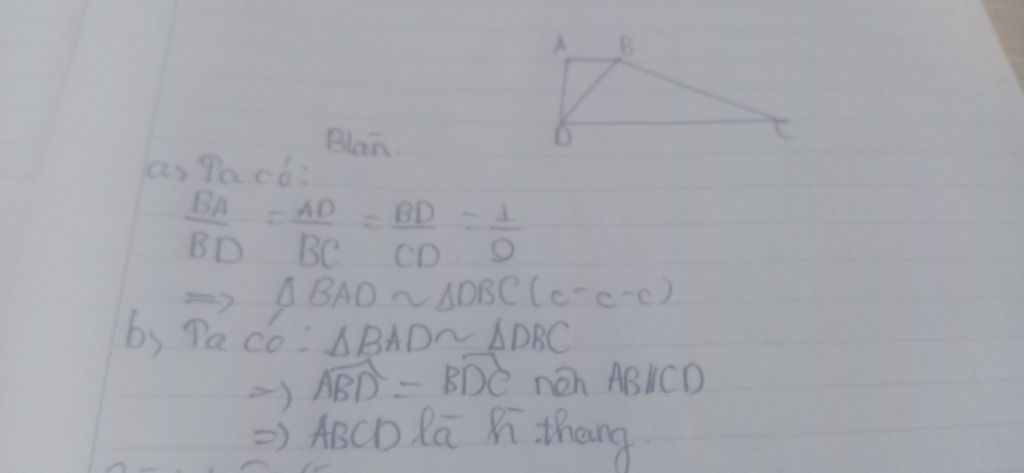 A B
D C
Blān.
a, Ta có:
BA/BD = AD/BC = BD/CD = 1/2
=> Δ BAD ~ ΔDBC (c-c-c).
b, Ta có: ΔBAD ~ ΔDBC
=) ABD = BDC nên AB//CD
=) ABCD là h thang.